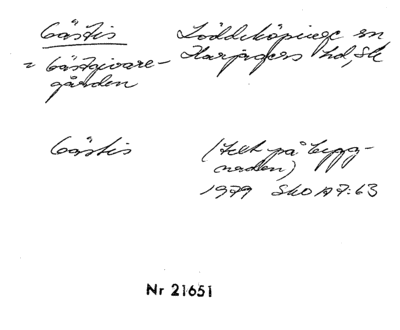 Gästis Löddeköpinge sn
= Gästgivare- Harjagers hd, Sk
gården
Gästis (text på bygg-
naden)
1979 SkO A7:63
Nr 21651